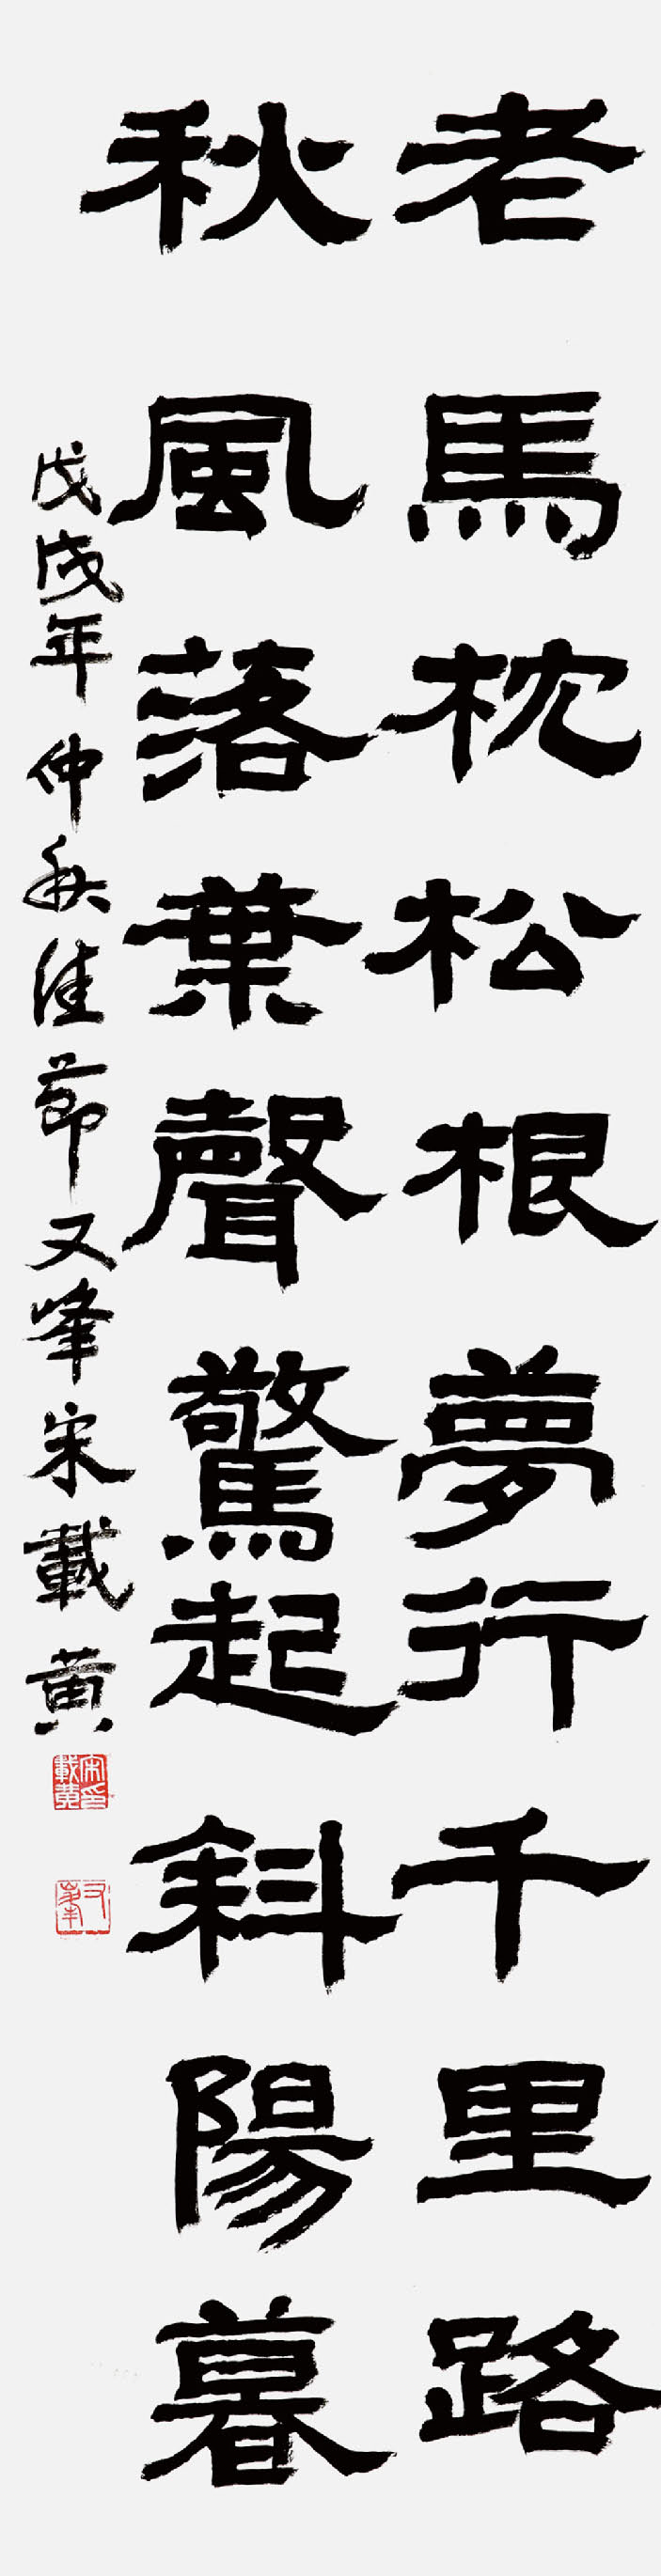 老馬枕松根夢行千里路
秋風落葉聲驚起斜陽暮
戊戌年仲秋佳節又峰宋載黄
宋載黄印
又峯